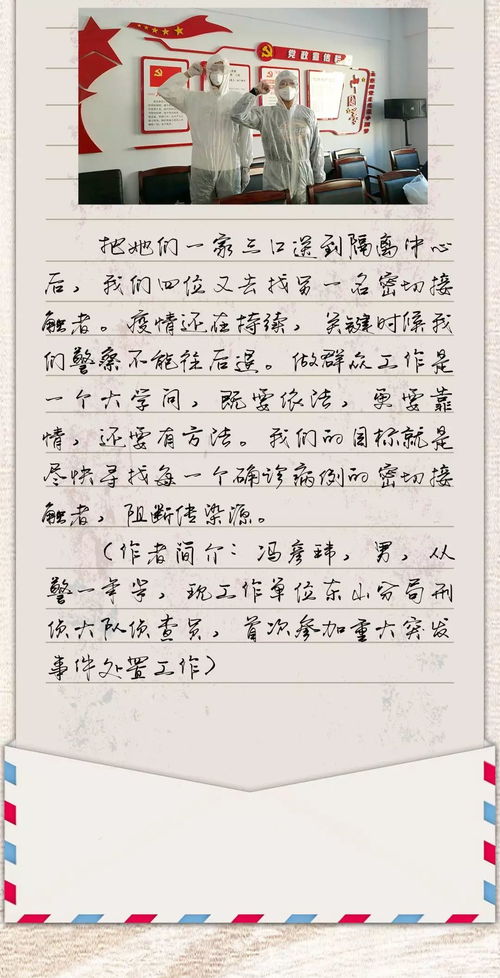 党政宣传栏
中国梦
把她们一家三口送到隔离中心
后，我们四位又去找另一名密切接
触者。疫情还在持续，关键时候我
们警察不能往后退。做群众工作是
一个大学问，既要依法，更要靠
情，还要有方法。我们的目标就是
尽快寻找每一个确诊病例的密切接
触者，阻断传染源。
（作者简介：冯彦玮，男，从
警一年半，现工作单位东山分局刑
侦大队侦查员，首次参加重大突发
事件处置工作）